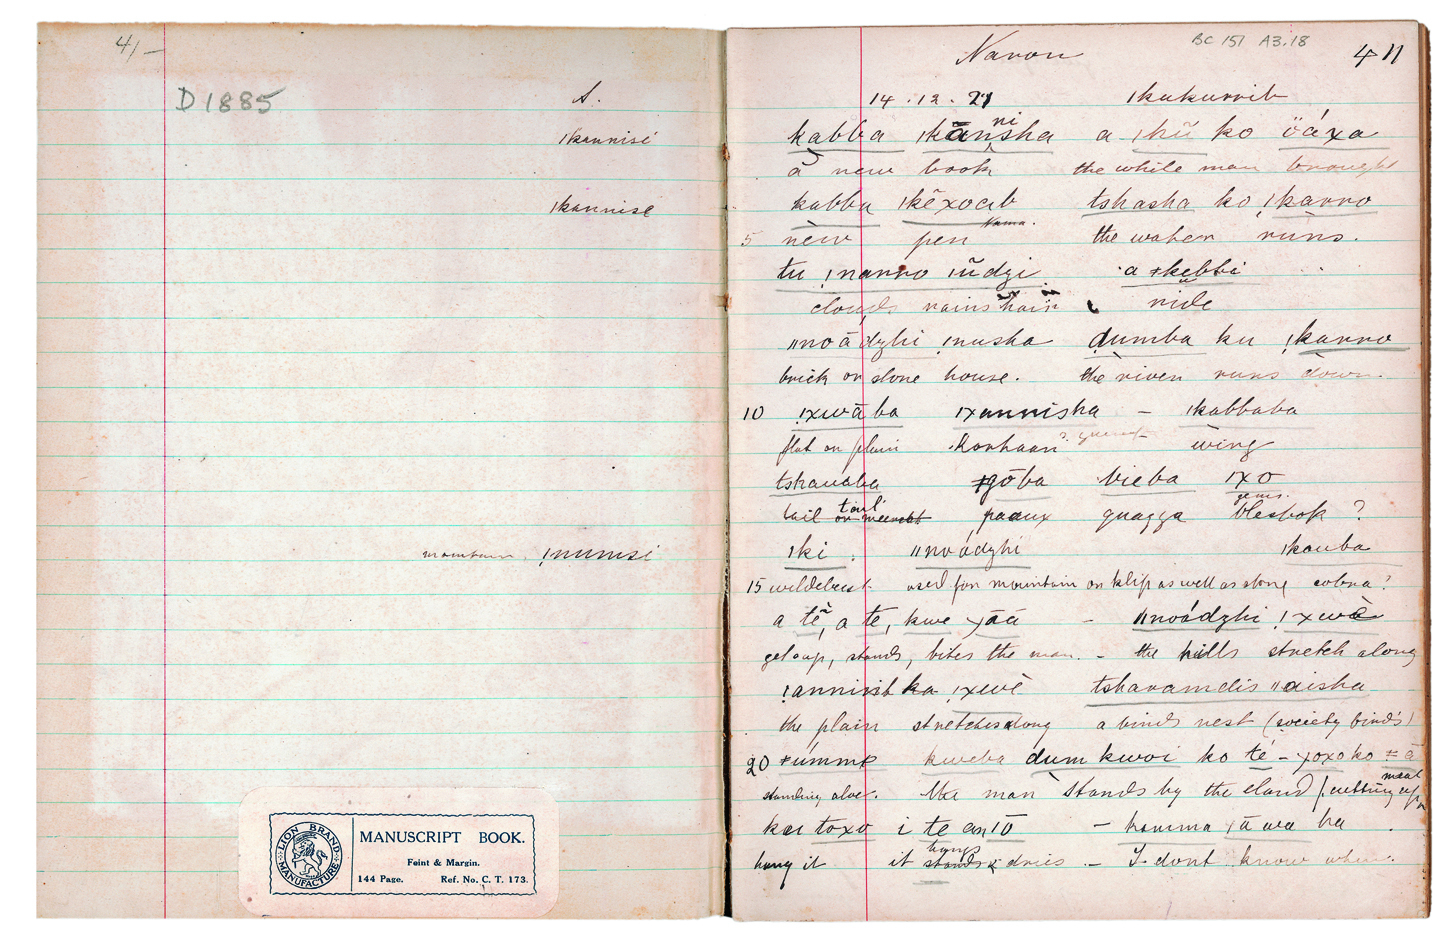 4/-
D 1885
S.
ǀkannisi
ǀkannisi
mountain. ǃnumsi
LION BRAND
MANUFACTURE
MANUSCRIPT BOOK.
Feint & Margin.
144 Page. Ref. No. C. T. 173.
BC 151 A3.18
Naron 411
14.12.21 ǀkukurrib
kabba ǀkānnisha a ǀhū ko öáxa
a new book the while man brought
kabba ǀkēxoab tshasha ko ǃkarro
Nama.
5 new pen the water runs.
tu ǃnarro ǀūdzi a ǂkebbi
clouds rains hair ride
ǁnoādzhi ǃnusha dumba ku ǃkarro
brick or stone house. the river runs down.
10 ǃxwāba ǀxannisha - ǀkabbaba
flat or plain Korhaan? wing
tshauaba ǂgōba bieba ǀxo
tail tail or meercat paauw quagga gems. blesbok ?
ǀki. ǁnoádzhi ǀkauba
15 wildebeest. used for mountain or klip as well as stone cobra?
a tē, a te, kwe xāā - ǁnoádzhi ǃxwē
get up, stands, bites the man. - the hills stretch along
ǃannirib ka ǃxwē tsharamdis ǁaisha
the plain stretches along a birds nest (society birds)
20 ǂúmmp kweba dum kwoi ko té - xoxo ko ǂā
standing aloe. the man stands by the eland / cutting up meat
kai toxo i te an īō - hamma ǀā wa ha.
hang it it stands hangs & dries - I dont know when.